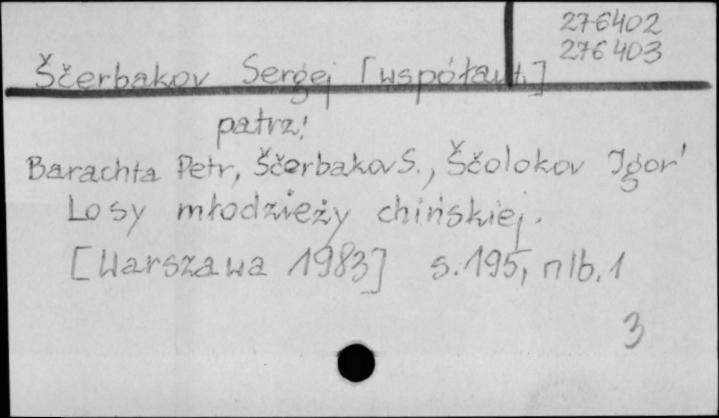 276402
276403
Ščerbakov Sergej [współaut.]
patrz!
Barachta Petr, Ščerbakov S., Ščolokov Igor'
Losy młodzieży chińskiej.
[Warszawa 1983] s.195, nlb.1
3